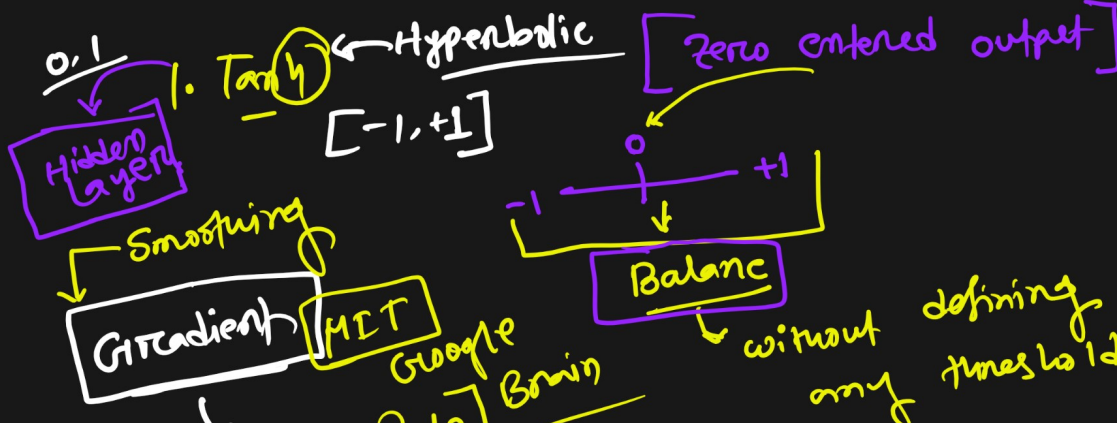 0,1
1. Tanh
Hyperbolic
[Zero entered output]
[-1, +1]
Hidden
Layer
0
-1
+1
Smoothing
Balanc
Gradient
MIT
Google
Brain
without defining
any threshold